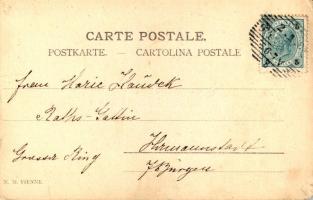 CARTE POSTALE.
POSTKARTE. — CARTOLINA POSTALE
Frau Marie
Raths-Gattin
Grosser Ring
Hermannstadt
M. M. VIENNE.